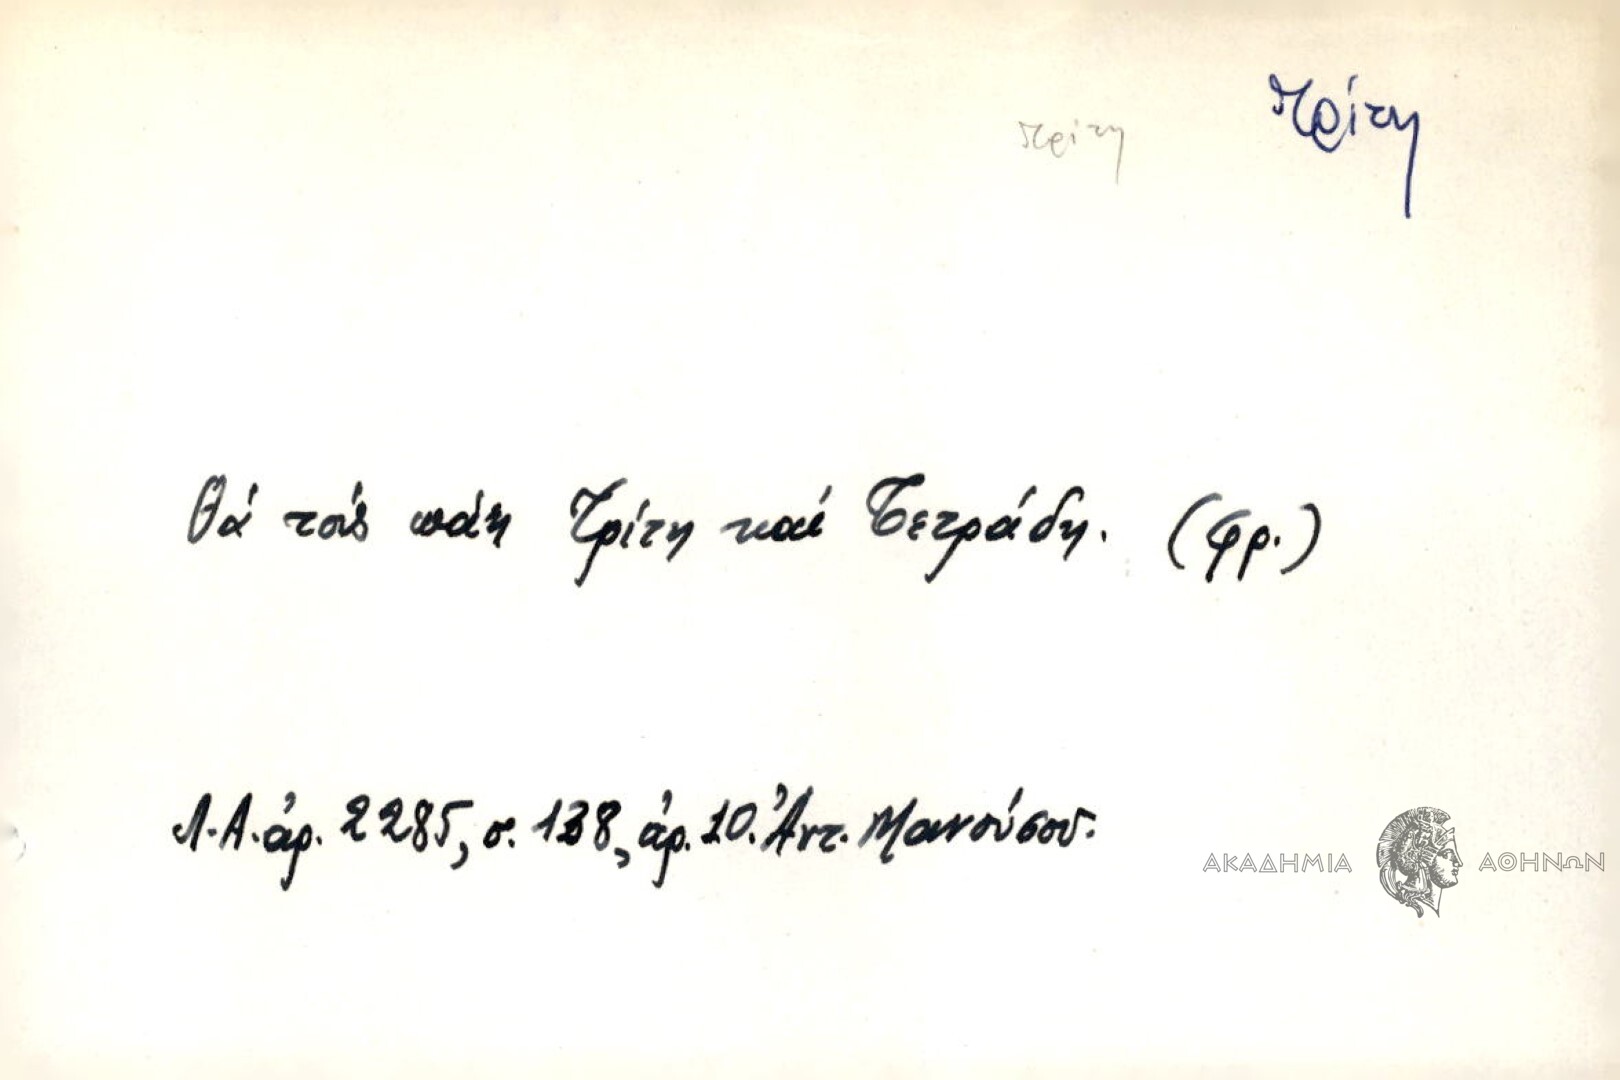 Τρίτη Τρίτη
Θά τσή πάη Τρίτη καί Τετράδη. (φρ.)
Λ.Α. ἀρ. 2285, σ. 138, ἀρ. 10. Ἀντ. Μανούσου.
ΑΚΑΔΗΜΙΑ ΑΘΗΝΩΝ